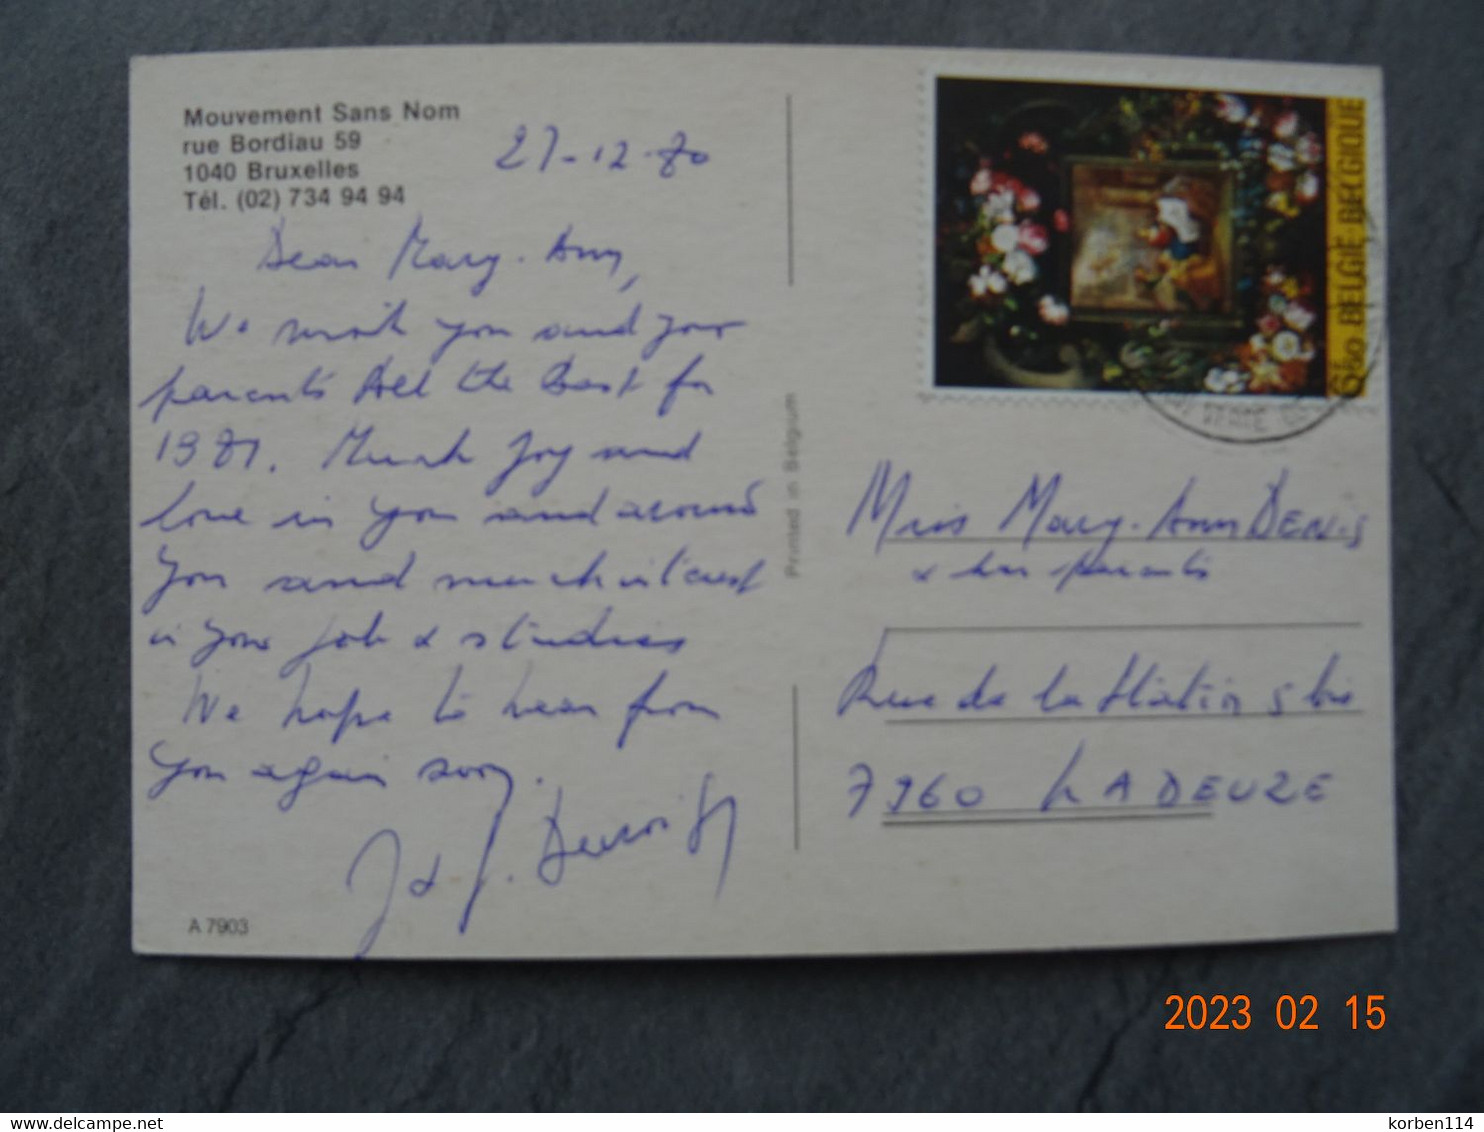 Mouvement Sans Nom
rue Bordiau 59
1040 Bruxelles
Tél. (02) 734 94 94
27-12-80
Dear Mary-Ann,
We wish you and your
parents All the Best for
1981. Much Joy and
love in you and around
you and much interest
in your job & studies
We hope to hear from
you again soon.
J & J.
A 7903
Printed in Belgium
BELGIË-BELGIQUE
6F50
Miss Mary-Ann DENIS
& her parents
Rue de la Station 5 bis
7960 LADEUZE
2023 02 15
korben114